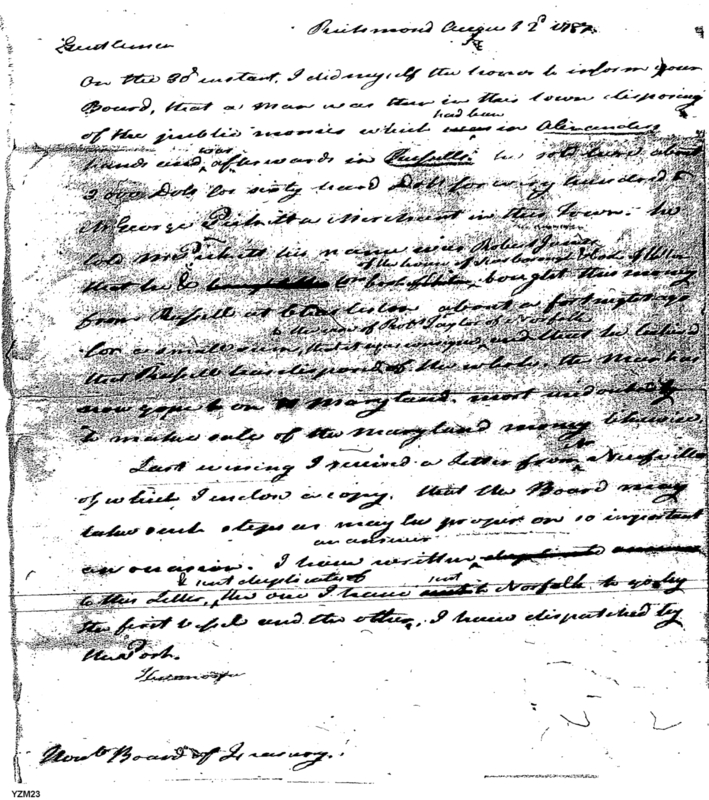 Richmond August 2d 1787
Gentlemen
On the 30th instant, I did myself the honor to inform your
Board, that a man was then in this town disposing
had been
of the public monies which was in Alexanders
was
hands and afterwards in Russells. he sold here about
Dolls for sixty hard Dolls for every hundred to
Mr George Pickett a Merchant in this Town. he
told Mr Pickett his name was Robert
that he & bought this money
from Russell at about a fortnight ago
to the care of Robt Taylor of Norfolk
for a small sum, that it was consigned and that he believed
that Russell has disposed of the whole. the Man has
now gone to on to Maryland. most undoubtedly
to make sale of the Maryland money likewise.
Last evening I received a Letter from a
of which I inclose a copy. that the Board may
take such steps as may be proper on so important
an answer
an occasion. I have written duplicate answer
& sent duplicates of
sent
to this Letter, the one I have sent to Norfolk to go by
the first vessel and the other, I have dispatched by
the Post.
Honble Board of Treasury.
YZM23